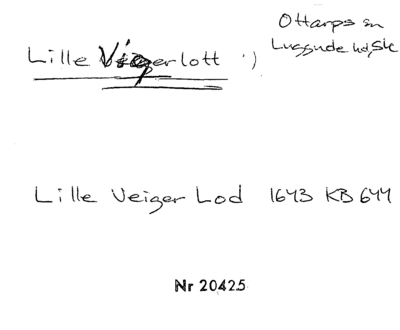 Ottarps sn
Luggude hd, Sk
Lille Vigerlott ·)
Lille Veiger Lod 1643 KB 644
Nr 20425